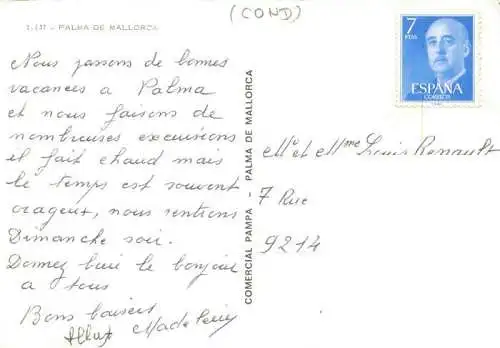 (COND)
PALMA DE MALLORCA
Nous passons de bonnes
vacances a Palma
et nous faisons de
nombreuses excursions
il fait chaud mais
le temps est souvent
orageux, nous rentrons
Dimanche soir.
Donnez bien le bonjour
a tous
Bons baisers
Madeleine
COMERCIAL PAMPA - PALMA DE MALLORCA
7
PTAS
ESPAÑA
CORREOS
Mr et Mme Louis Renault
7 Rue
9214